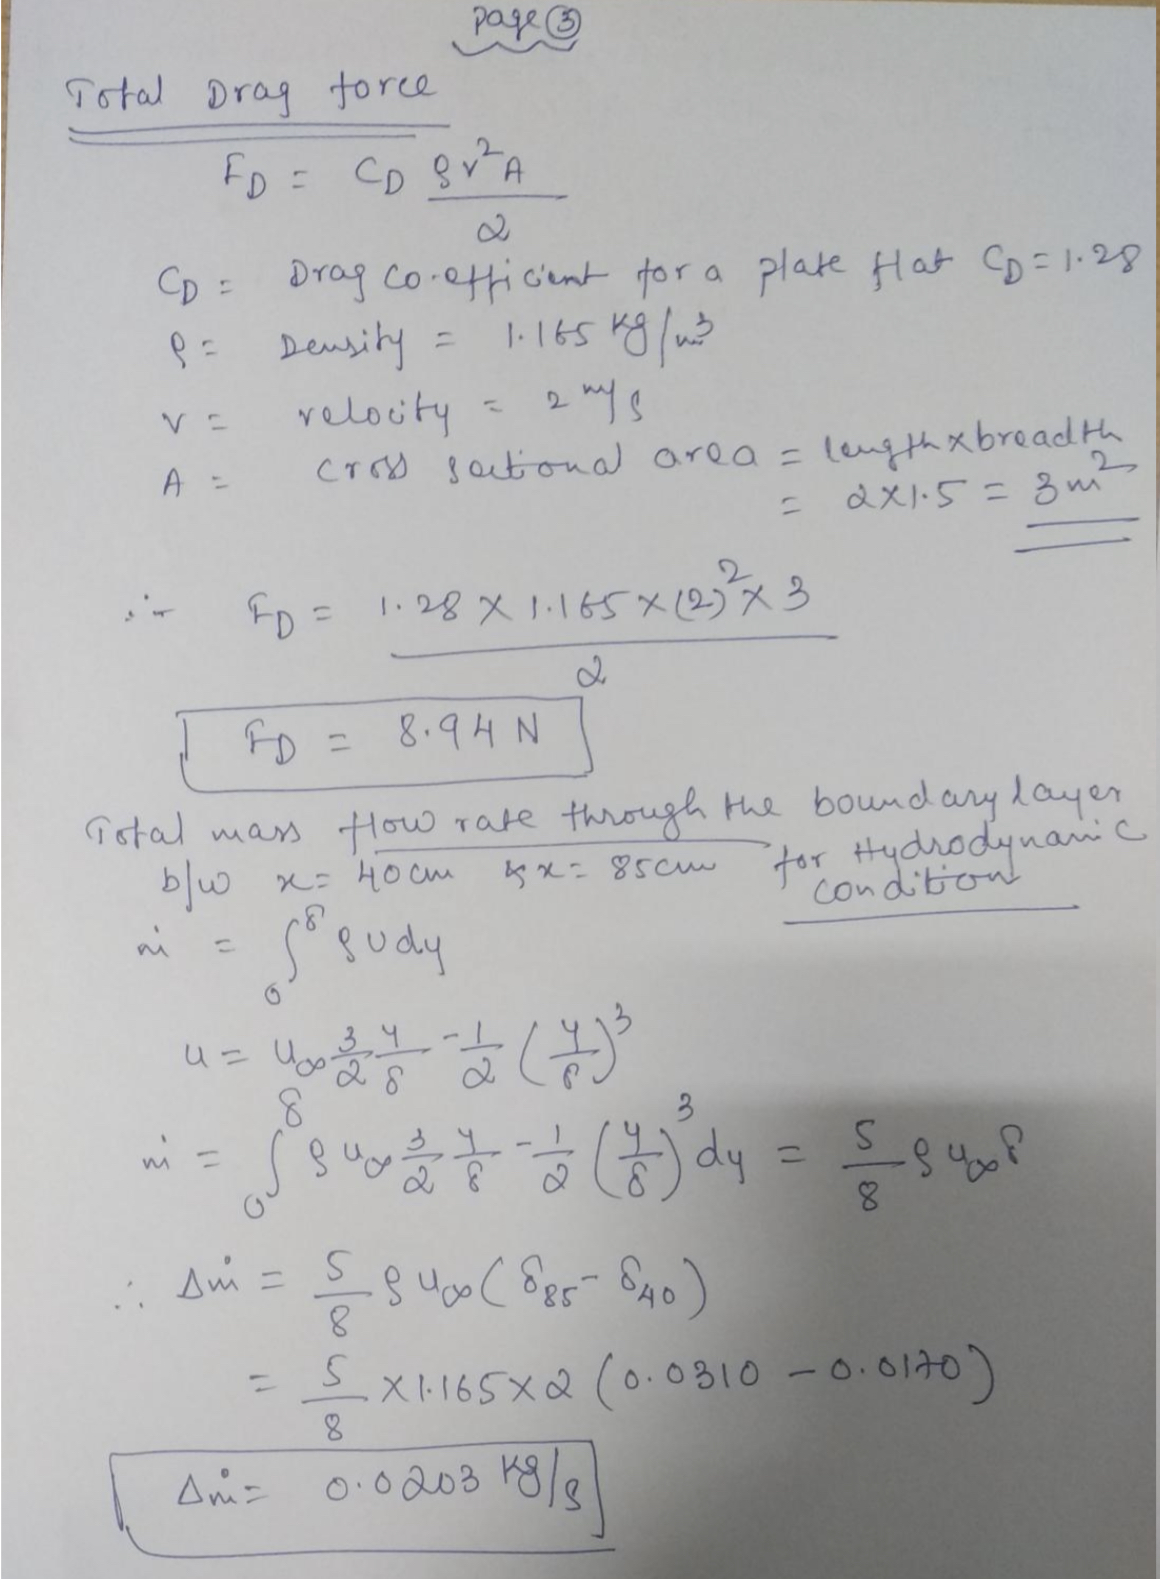 Page ③
Total Drag force
F_D = C_D ρv²A
2
C_D = Drag co-efficient for a plate flat C_D = 1.28
ρ = Density = 1.165 kg/m³
v = velocity = 2 m/s
A = cross sectional area = length x breadth
= 2×1.5 = 3m²
∴ F_D = 1.28 × 1.165 × (2)² × 3
2
F_D = 8.94 N
Total mass flow rate through the boundary layer
b/w x = 40cm & x = 85cm for Hydrodynamic
condition
ṁ = ∫₀^δ ρ u dy
u = u∞ 3/2 y/δ - 1/2 (y/δ)³
ṁ = ∫₀^δ ρ u∞ 3/2 y/δ - 1/2 (y/δ)³ dy = 5/8 ρ u∞ δ
∴ Δṁ = 5/8 ρ u∞ (δ85 - δ40)
= 5/8 × 1.165 × 2 (0.0310 - 0.0170)
Δṁ = 0.0203 kg/s